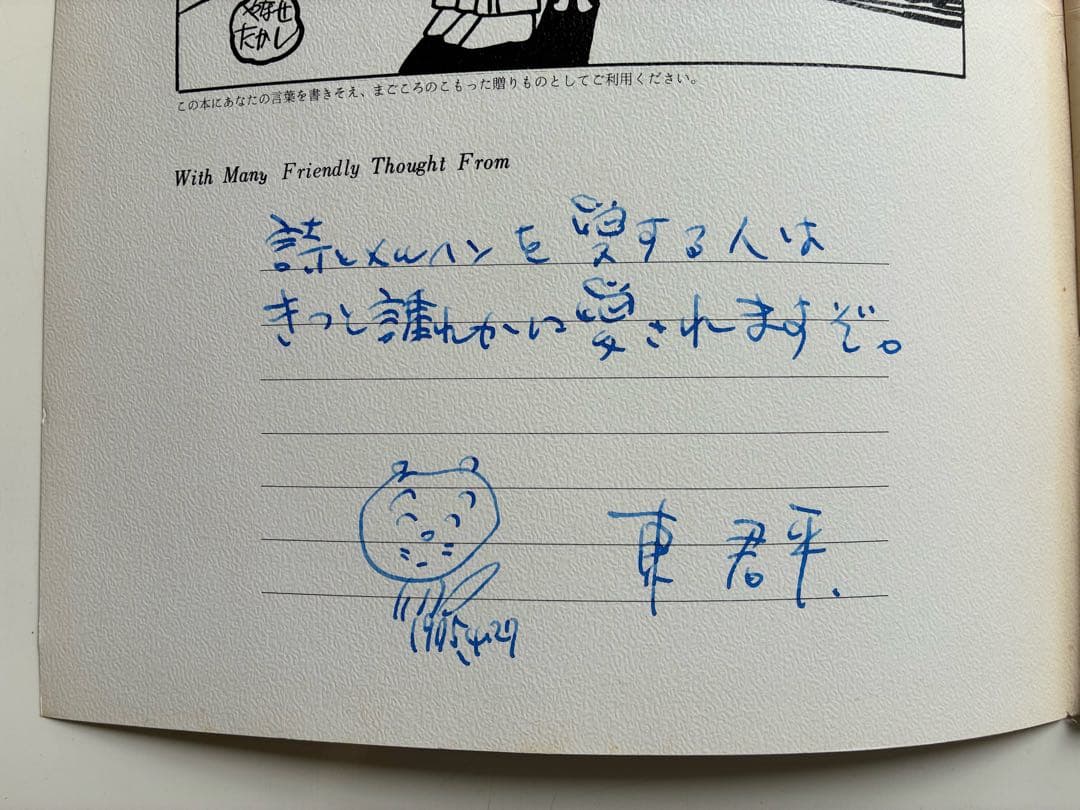 やなせ
たかし
この本にあなたの言葉を書きそえ、まごころのこもった贈りものとしてご利用ください。
With Many Friendly Thought From
詩とメルヘンを愛する人は
きっと誰れかに愛されますぞ。
東君平.
1985.4.27